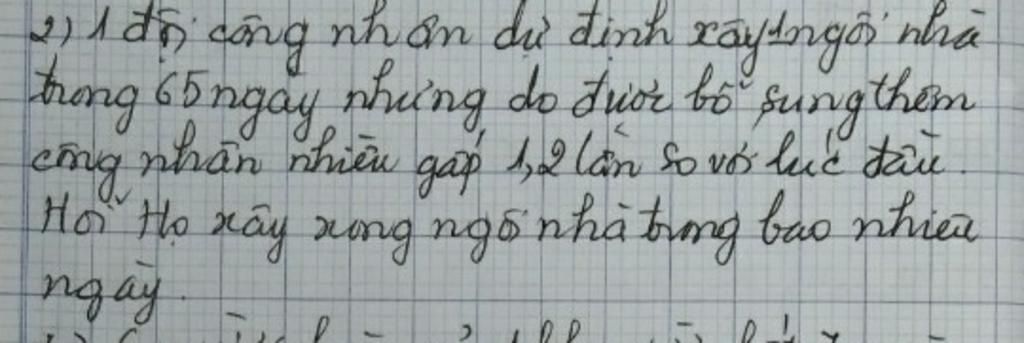 2) 1 đội công nhân dự định xây 1 ngôi nhà
trong 65 ngày nhưng do được bổ sung thêm
công nhân nhiều gấp 1,2 lần so với lúc đầu.
Hỏi Họ xây xong ngôi nhà trong bao nhiêu
ngày.